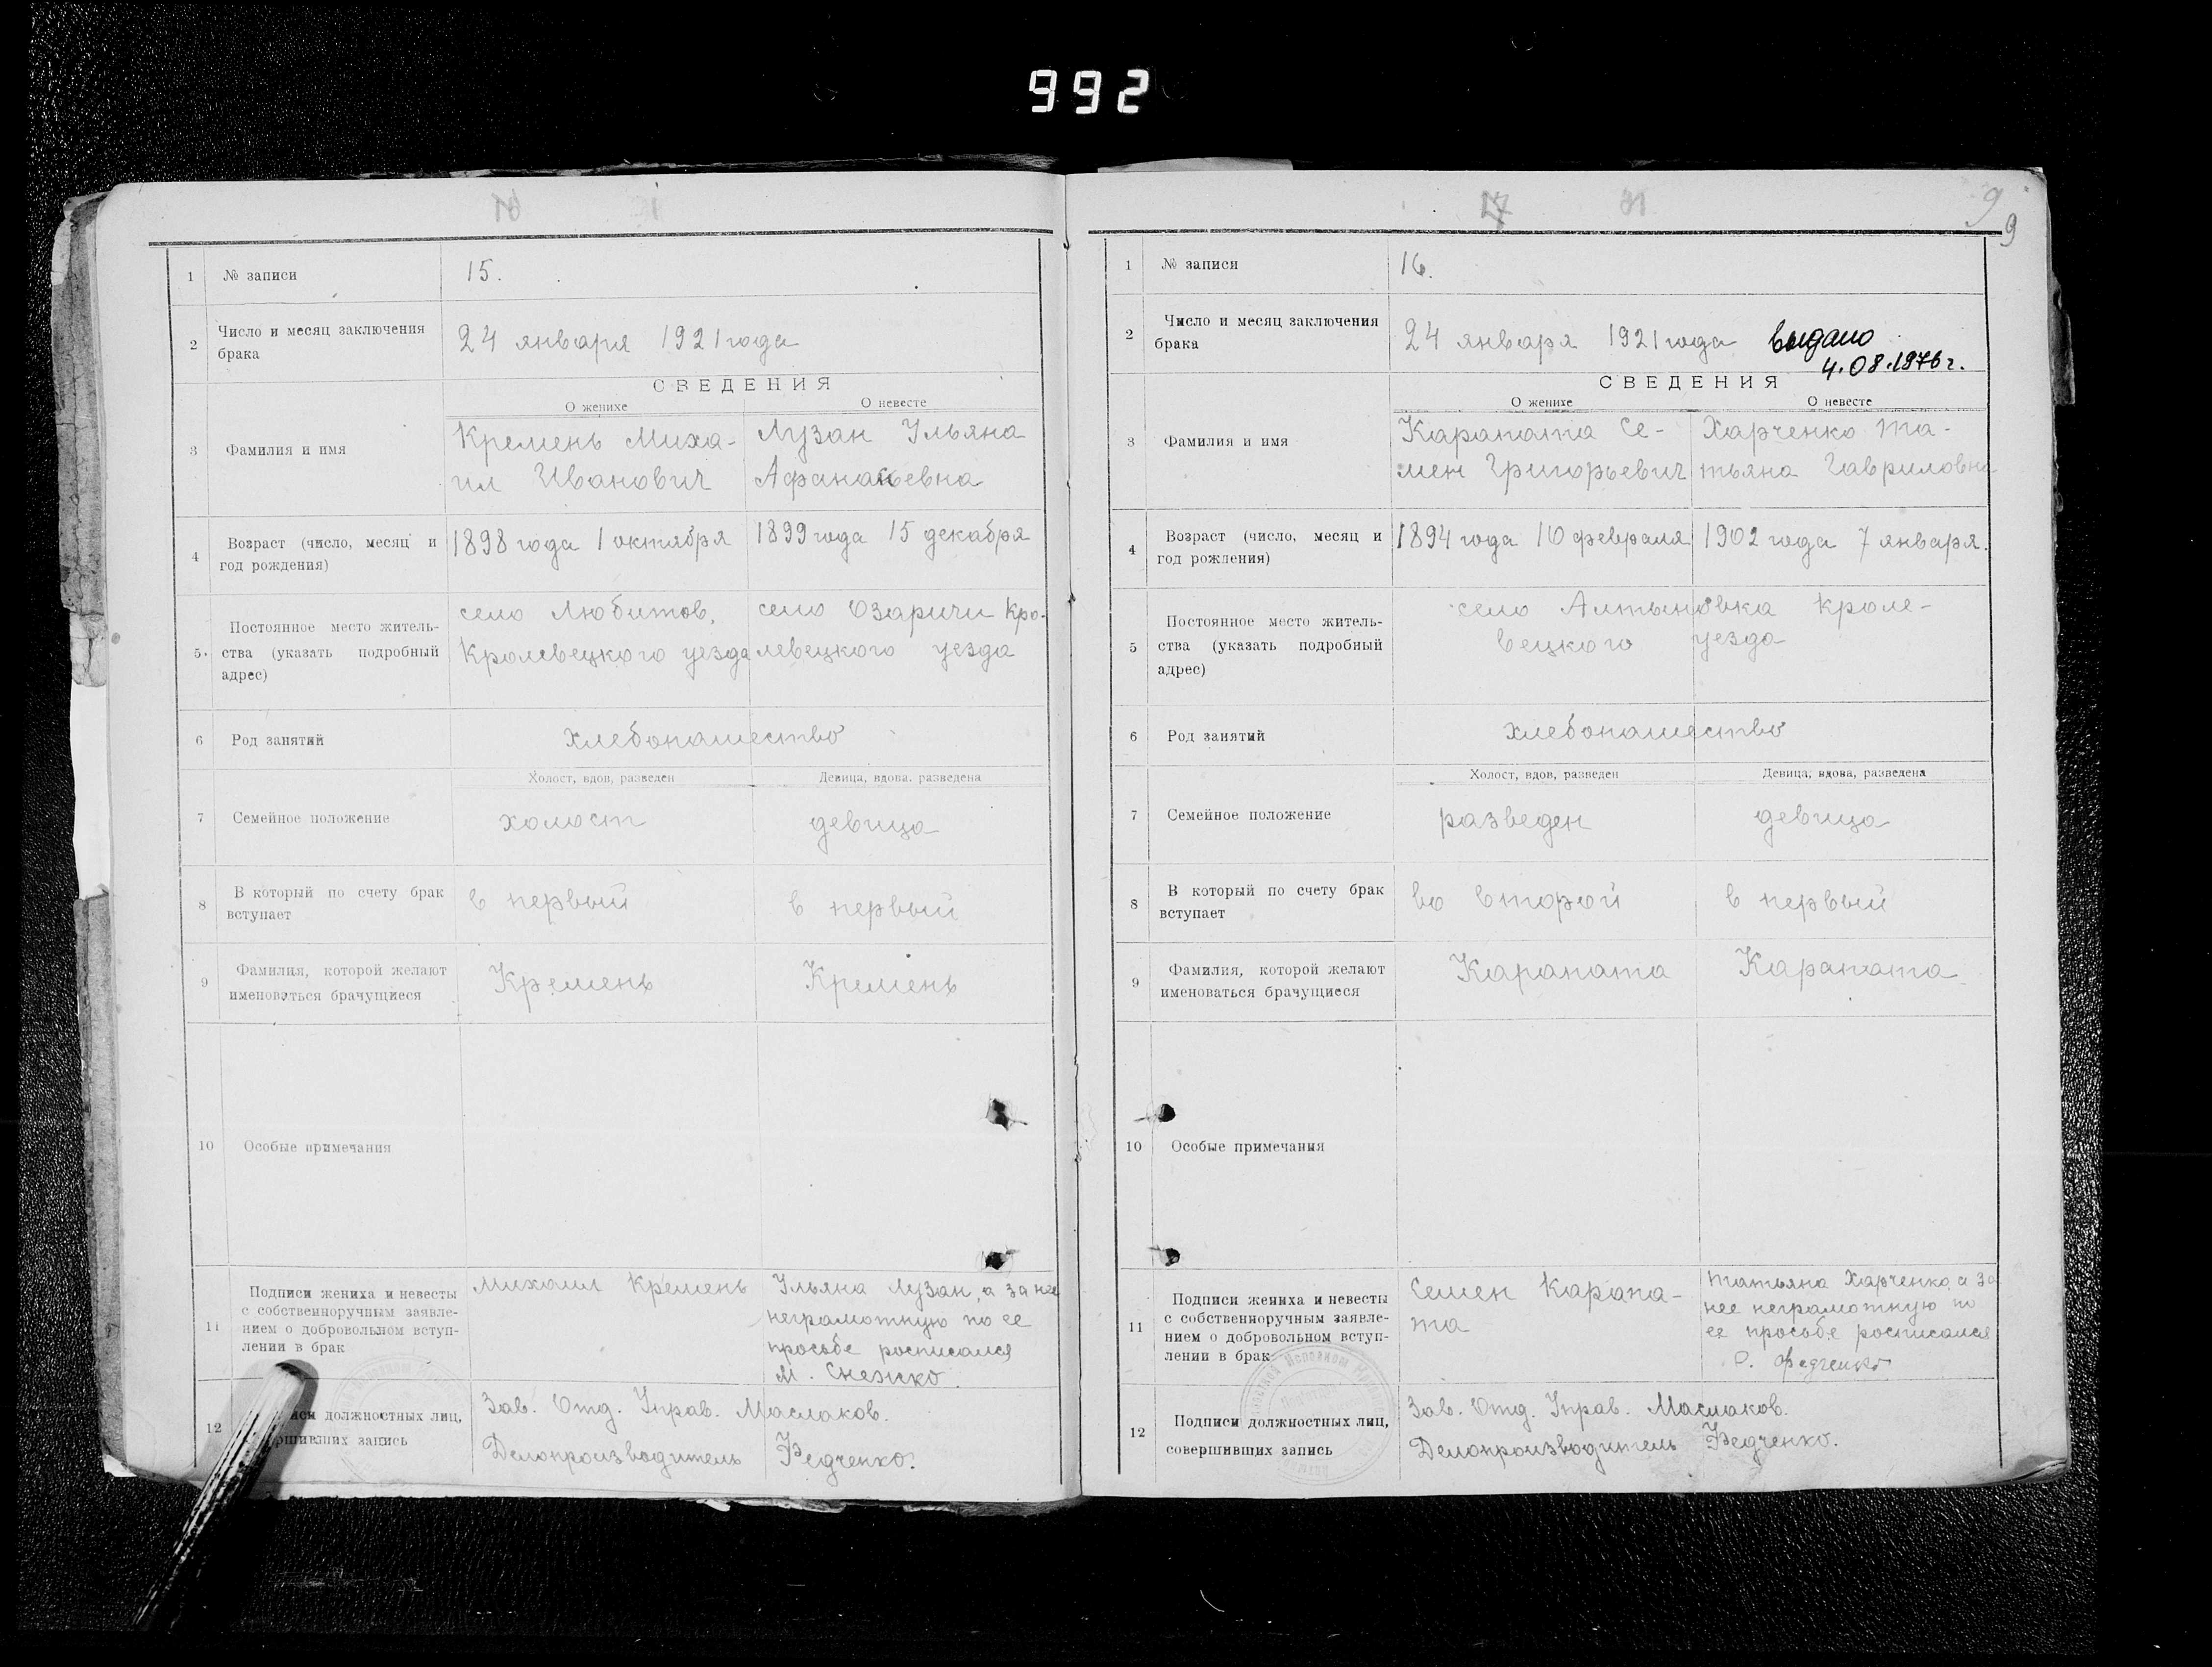 992
9
9
1 № записи 15.
2 Число и месяц заключения
брака
24 января 1921 года
СВЕДЕНИЯ
О женихе О невесте
3 Фамилия и имя
Кремень Миха-
ил Иванович
Лузан Ульяна
Афанасьевна
4 Возраст (число, месяц и
год рождения)
1898 года 1 октября
1899 года 15 декабря
5. Постоянное место житель-
ства (указать подробный
адрес)
село Любитов,
Кролевецкого уезда
село Озаричи Кро-
левецкого уезда
6 Род занятий хлебопашество
Холост, вдов, разведен Девица, вдова. разведена
7 Семейное положение холост девица
8 В который по счету брак
вступает
в первый в первый
9 Фамилия, которой желают
именоваться брачущиеся
Кремень Кремень
10 Особые примечания
11 Подписи жениха и невесты
с собственноручным заявле-
нием о добровольном вступ-
лении в брак
Михаил Кремень
Ульяна Лузан, а за нее
неграмотную по ее
просьбе росписался
М. Снежко.
12 иси должностных лиц,
ршивших запись
Зав. Отд. Управ. Маслаков.
Делопроизводитель Федченко.
1 № записи 16.
2 Число и месяц заключения
брака
24 января 1921 года выдано
4.08.1976 г.
СВЕДЕНИЯ
О женихе О невесте
3 Фамилия и имя
Карапата Се-
мен Григорьевич
Харченко Та-
тьяна Гавриловна
4 Возраст (число, месяц и
год рождения)
1894 года 10 февраля
1902 года 7 января.
5 Постоянное место житель-
ства (указать подробный
адрес)
село Алтыновка Кроле-
вецкого уезда
6 Род занятий хлебопашество
Холост, вдов, разведен Девица, вдова, разведена
7 Семейное положение разведен девица
8 В который по счету брак
вступает
во второй в первый
9 Фамилия, которой желают
именоваться брачущиеся
Карапата Карапата
10 Особые примечания
11 Подписи жениха и невесты
с собственноручным заявле-
нием о добровольном вступ-
лении в брак
Семен Карапа-
та
Татьяна Харченко, а за
нее неграмотную по
ее просьбе росписался
Федченко
12 Подписи должностных лиц,
совершивших запись
Зав. Отд. Управ. Маслаков.
Делопроизводитель Федченко.